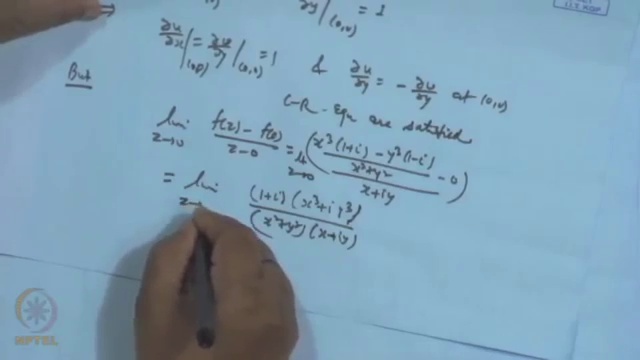 ⇒ ∂y |(0,0) = 1
∂u/∂x |(0,0) = ∂v/∂y |(0,0) = 1 & ∂u/∂y = - ∂u/∂y at (0,0)
But C-R-Eqn are satisfied
lim z→0 f(z) - f(0) / z-0 = lt z→0 ( x³(1+i) - y³(1-i) / x²+y² - 0 / x+iy )
= lim z→ (1+i) (x³+iy³) / (x²+y²) (x+iy)
NPTEL